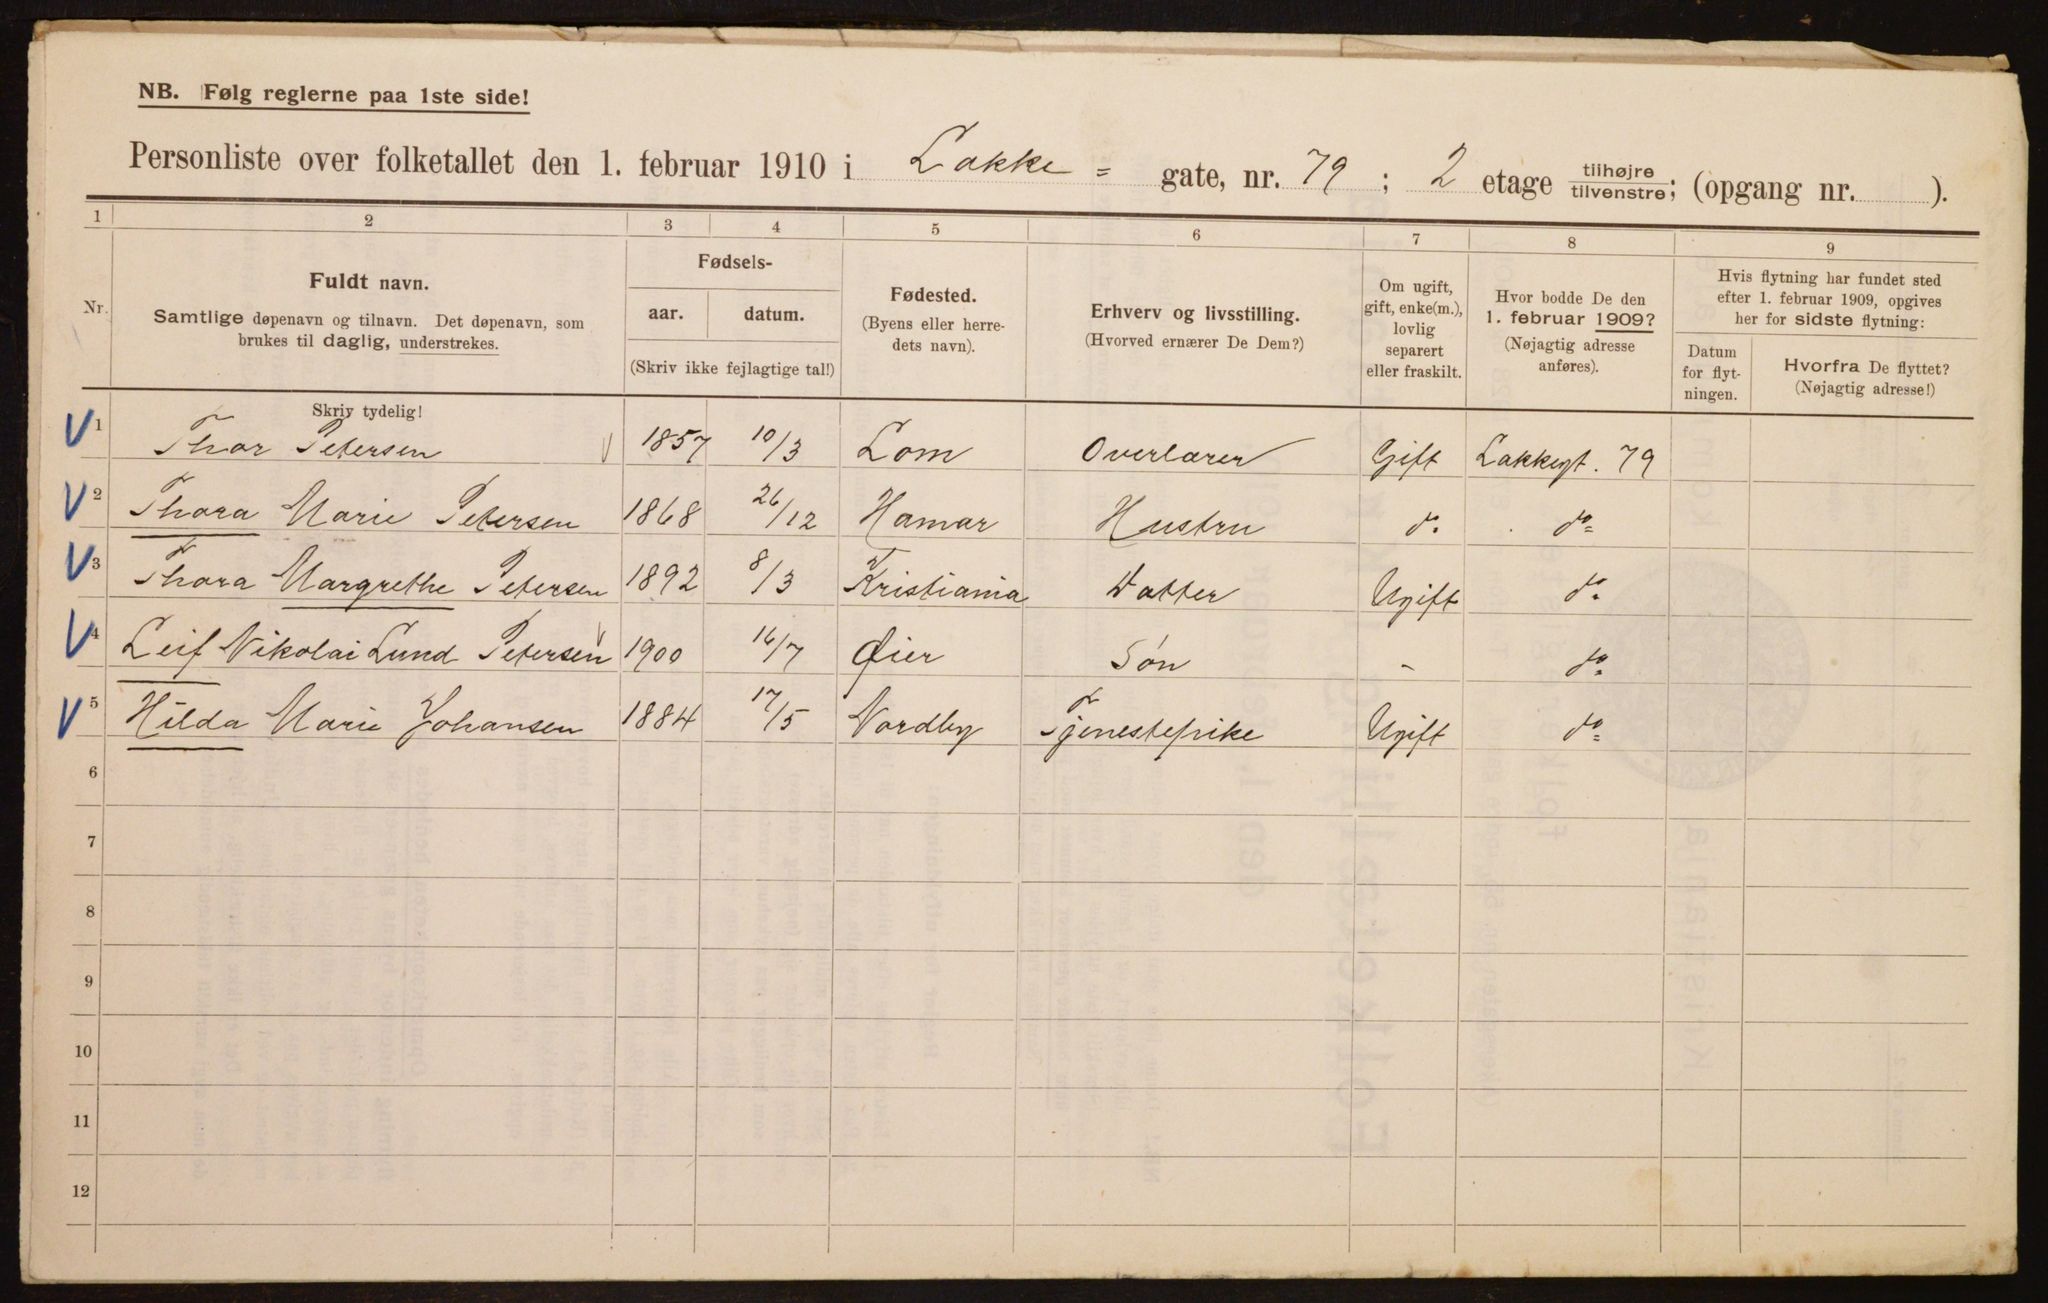 NB. Følg reglerne paa 1ste side!
Personliste over folketallet den 1. februar 1910 i Lakke = gate, nr. 79; 2 etage tilhøjre/tilvenstre; (opgang nr. ).
1 2 3 4 5 6 7 8 9
Nr.
Fuldt navn.
Samtlige døpenavn og tilnavn. Det døpenavn, som
brukes til daglig, understrekes.
Skriv tydelig!
Fødsels-
aar. datum.
(Skriv ikke fejlagtige tal!)
Fødested.
(Byens eller herre-
dets navn).
Erhverv og livsstilling.
(Hvorved ernærer De Dem?)
Om ugift,
gift, enke(m.),
lovlig
separert
eller fraskilt.
Hvor bodde De den
1. februar 1909?
(Nøjagtig adresse
anføres).
Hvis flytning har fundet sted
efter 1. februar 1909, opgives
her for sidste flytning:
Datum
for flyt-
ningen.
Hvorfra De flyttet?
(Nøjagtig adresse!)
V 1 Thor Petersen 1857 10/3 Lom Overlærer Gift Lakkegt. 79
V 2 Thora Marie Petersen 1868 26/12 Hamar Hustru do do
V 3 Thora Margrethe Petersen 1892 8/3 Kristiania Datter Ugift do
V 4 Leif Nikolai Lund Petersen 1900 16/7 Øier Søn - do
V 5 Hilda Marie Johansen 1884 17/5 Nordby Tjenestepike Ugift do
6
7
8
9
10
11
12